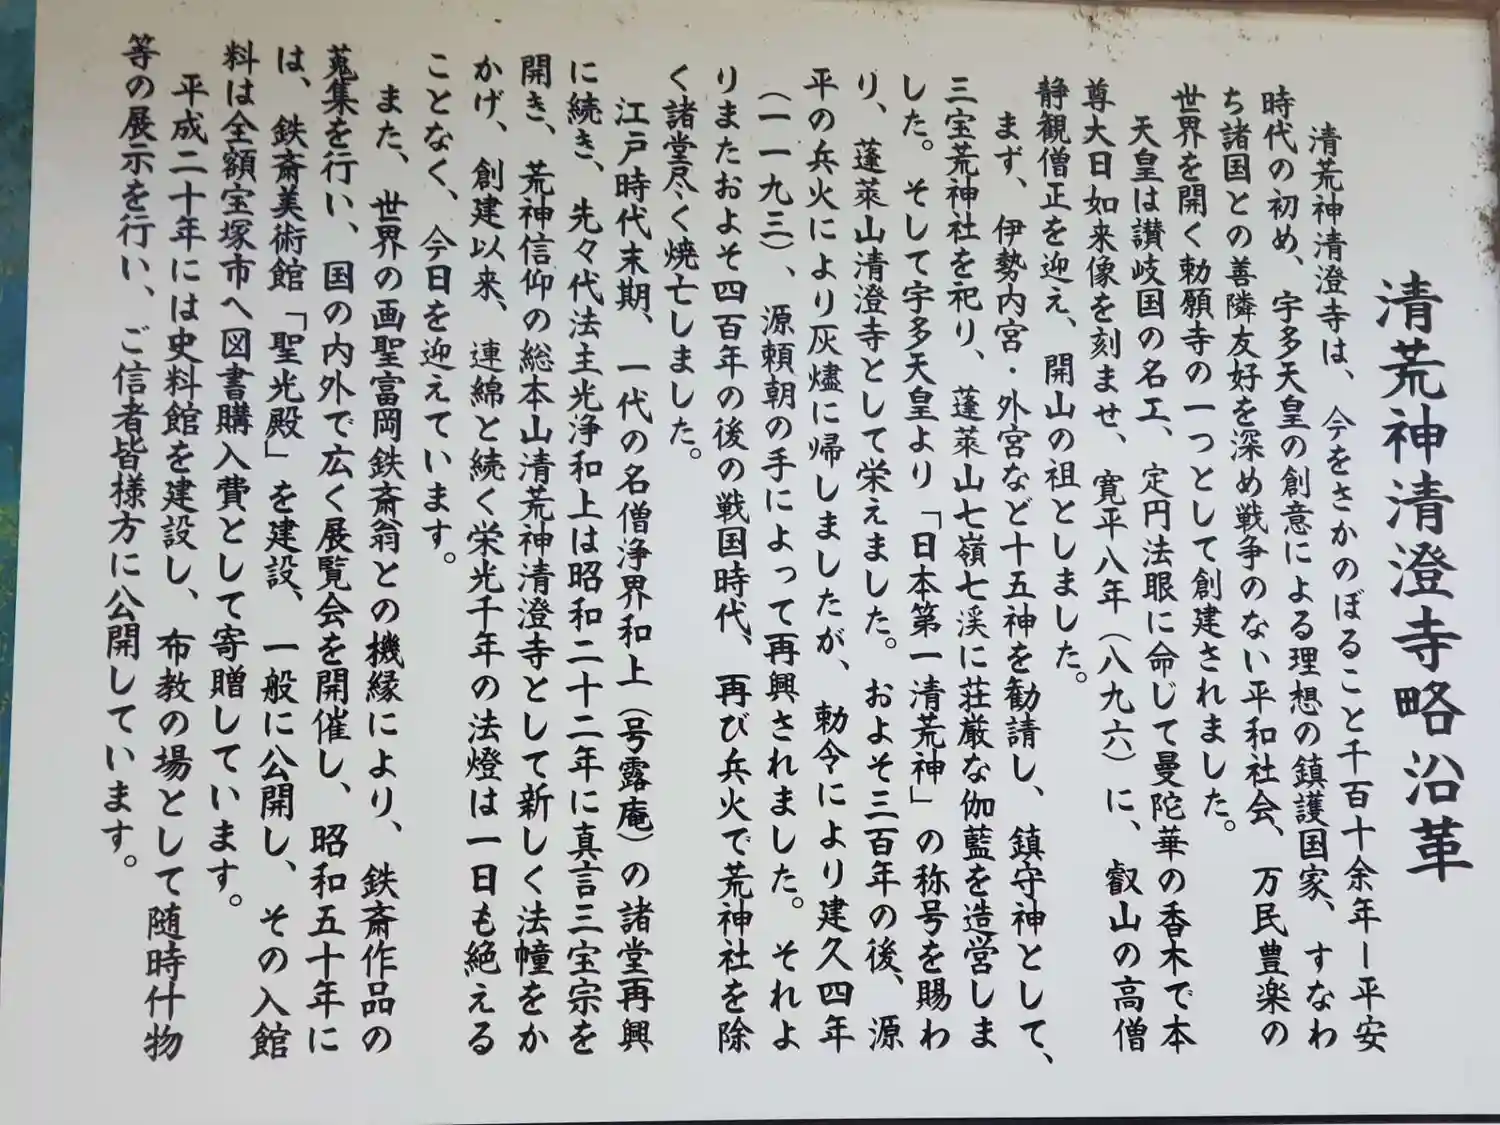 清荒神清澄寺略沿革
清荒神清澄寺は、今をさかのぼること千百十余年ー平安
時代の初め、宇多天皇の創意による理想の鎮護国家、すなわ
ち諸国との善隣友好を深め戦争のない平和社会、万民豊楽の
世界を開く勅願寺の一つとして創建されました。
天皇は讃岐国の名工、定円法眼に命じて曼陀華の香木で本
尊大日如来像を刻ませ、寛平八年（八九六）に、叡山の高僧
静観僧正を迎え、開山の祖としました。
まず、伊勢内宮・外宮など十五神を勧請し、鎮守神として、
三宝荒神社を祀り、蓬萊山七嶺七渓に荘厳な伽藍を造営しま
した。そして宇多天皇より「日本第一清荒神」の称号を賜わ
り、蓬萊山清澄寺として栄えました。およそ三百年の後、源
平の兵火により灰燼に帰しましたが、勅令により建久四年
（一一九三）、源頼朝の手によって再興されました。それよ
りまたおよそ四百年の後の戦国時代、再び兵火で荒神社を除
く諸堂尽く焼亡しました。
江戸時代末期、一代の名僧浄界和上（号露庵）の諸堂再興
に続き、先々代法主光浄和上は昭和二十二年に真言三宝宗を
開き、荒神信仰の総本山清荒神清澄寺として新しく法幢をか
かげ、創建以来、連綿と続く栄光千年の法燈は一日も絶える
ことなく、今日を迎えています。
また、世界の画聖富岡鉄斎翁との機縁により、鉄斎作品の
蒐集を行い、国の内外で広く展覧会を開催し、昭和五十年に
は、鉄斎美術館「聖光殿」を建設、一般に公開し、その入館
料は全額宝塚市へ図書購入費として寄贈しています。
平成二十年には史料館を建設し、布教の場として随時什物
等の展示を行い、ご信者皆様方に公開しています。